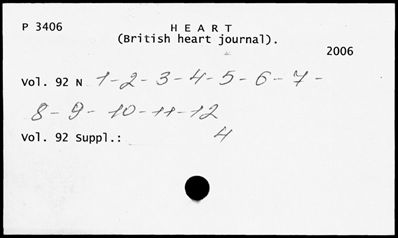 P 3406 H E A R T
(British heart journal).
2006
Vol. 92 N 1-2-3-4-5-6-7-
8-9-10-11-12
Vol. 92 Suppl.: 4